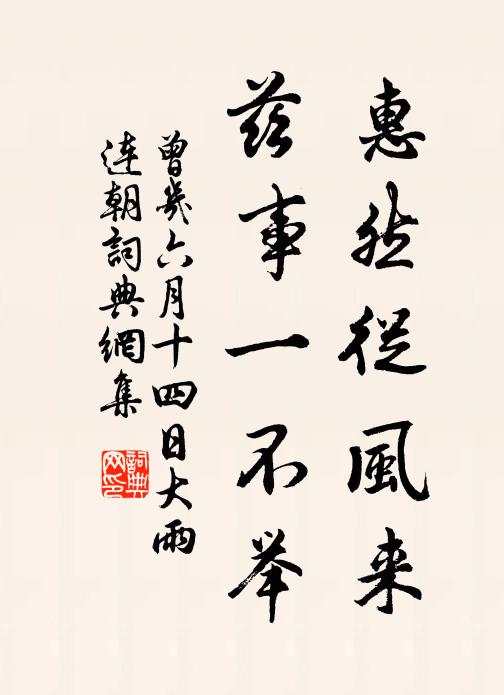 惠然從風来
茲事一不举
曾幾六月十四日大雨
連朝詞典網集
詞典网印